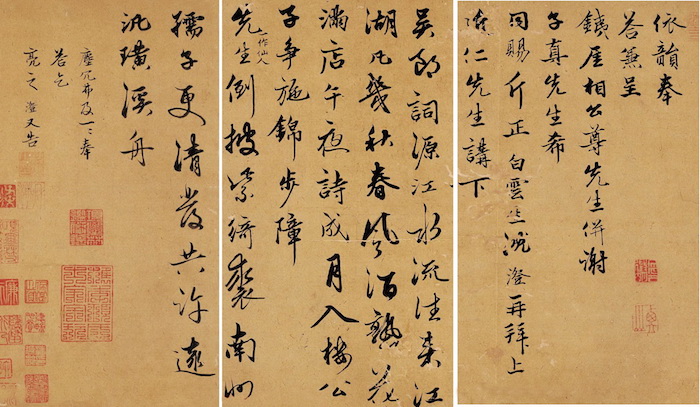 依韻奉
荅兼呈
鐵崖相公尊先生併謝
子真先生希
同賜斤正白雲生澄再拜上
仁先生講下
吳郎詞源江水流往來江
湖凡幾秋春風酒熟花
滿店午夜詩成月入樓公
子爭施錦步障
一作仙人
先生倒披紫綺裘南州
孺子更清發共許遠
汎璜溪舟
塵冗弗及一一奉
荅乞
亮之 澄又告